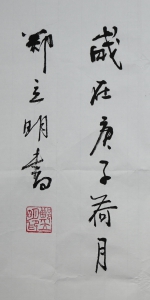 歲在庚子荷月
鄭立明書